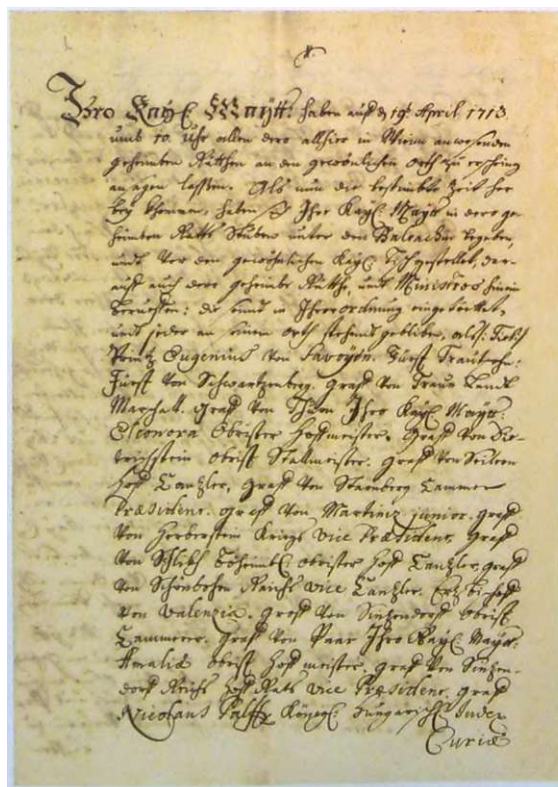 Ihro Kayl. Maytt: haben auf d 19t April 1713.
umb 10. Uhr allen dero allhier in Wienn anwesenden
geheimben Räthen an dem gewönlichen Orth zu erscheinen
ansagen lassen. Als nun die bestimbte Zeit her
bey khommen, haben sich Ihro Kayl. Maytt in dero ge-
heimben Raths Stuben unter den Baldachin begeben,
und vor den gewöhnlichen Kayl. Tisch gestellet, dar-
auf auch dero geheimbe Räthe, und Ministros hinein
beruffen: die sind in Ihrer ordnung eingetretten,
und jeder an seinem orth stehend gebliben, als:
Printz Eugenius von Savoyen. Fürst Trautsohn:
Fürst von Schwartzenberg. Graff von Traun Landt
Marschall. Graff von Thurn Ihro Kayl. Maytt:
Eleonora Obrister Hoffmeister. Graff von Die-
trichstein obrist Stallmeister. Graff von Seilern
Hoff Cantzler, Graff von Starnberg Cammer
Præsident. Graff von Martiniz junior. Graff
von Herberstein Kriegs vice Præsident, Graff
von Schlikh Böheimbl. obrister Hoff Cantzler, Graff
von Schönborn Reichs vice Cantzler. Ertz Bischoff
von Valenzia. Graff von Sintzendorff Obrist
Cammerer. Graff von Paar Ihro Kayl. Maytt:
Amaliæ obrist Hoffmeister. Graff von Sintzen-
dorff Reichs Hoff Raths vice Præsident. Graff
Nicolaus Palffy Königl. Hungarischer Judex
Curiæ